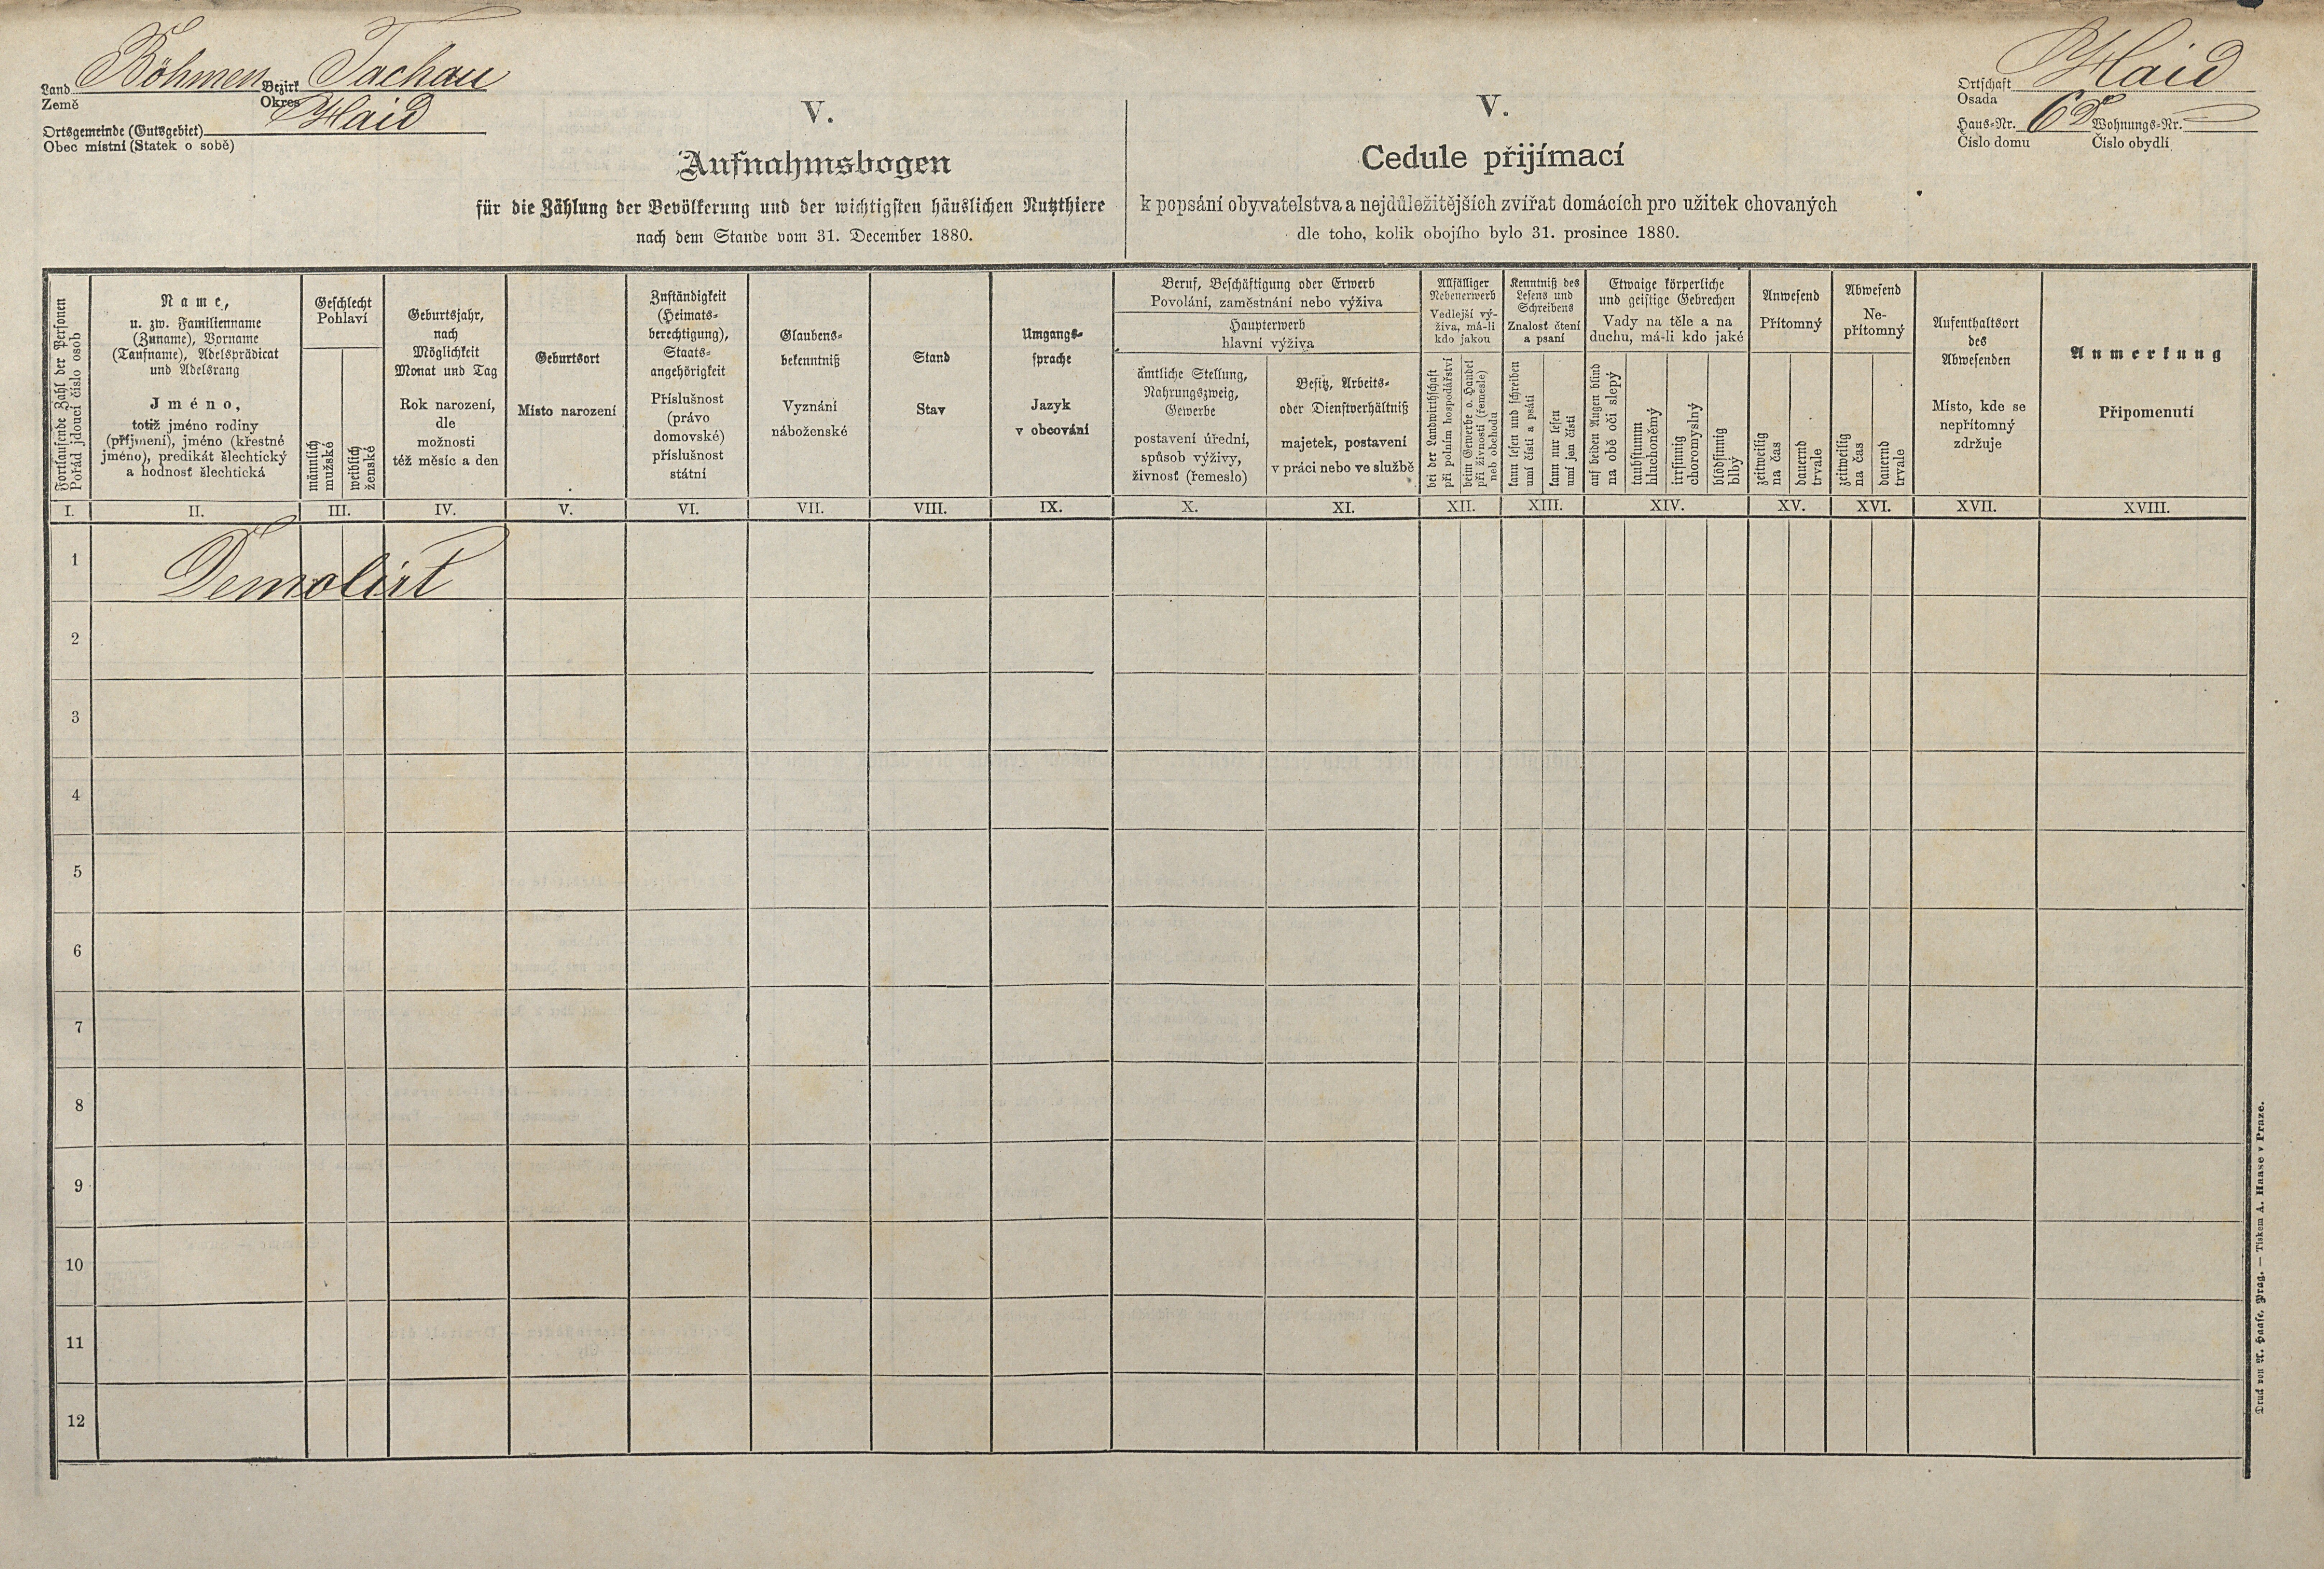 Land Böhmen Bezirk Tachau
Země Okres
Ortsgemeinde (Gutsgebiet) Haid
Obec místní (Statek o sobě)
Ortschaft Haid
Osada
Haus-Nr. Wohnungs-Nr.
Číslo domu Číslo obydlí
V.
Aufnahmsbogen
für die Zählung der Bevölkerung und der wichtigsten häuslichen Nutzthiere
nach dem Stande vom 31. December 1880.
V.
Cedule přijímací
k popsání obyvatelstva a nejdůležitějších zvířat domácích pro užitek chovaných
dle toho, kolik obojího bylo 31. prosince 1880.
Fortlaufende Zahl der Personen
Pořád jdoucí číslo osob
Name,
u. zw. Familienname
(Zuname), Vorname
(Taufname), Adelsprädicat
und Adelsrang
Jméno,
totiž jméno rodiny
(příjmení), jméno (křestné
jméno), predikát šlechtický
a hodnosť šlechtická
Geschlecht
Pohlaví
männlich
mužské
weiblich
ženské
Geburtsjahr,
nach
Möglichkeit
Monat und Tag
Rok narození,
dle
možnosti
též měsíc a den
Geburtsort
Místo narození
Zuständigkeit
(Heimats-
berechtigung),
Staats-
angehörigkeit
Příslušnost
(právo
domovské)
příslušnost
státní
Glaubens-
bekenntniß
Vyznání
náboženské
Stand
Stav
Umgangs-
sprache
Jazyk
v obcování
Beruf, Beschäftigung oder Erwerb
Povolání, zaměstnání nebo výživa
Haupterwerb
hlavní výživa
ämtliche Stellung,
Nahrungszweig,
Gewerbe
postavení úřední,
spůsob výživy,
živnosť (řemeslo)
Besitz, Arbeits-
oder Dienstverhältniß
majetek, postavení
v práci nebo ve službě
Allfälliger
Nebenerwerb
Vedlejší vý-
živa, má-li
kdo jakou
bei der Landwirthschaft
při polním hospodářství
beim Gewerbe o. Handel
při živnosti (řemesle)
neb obchodu
Kenntniß des
Lesens und
Schreibens
Znalosť čtení
a psaní
kann lesen und schreiben
umí čísti a psáti
kann nur lesen
umí jen čísti
Etwaige körperliche
und geistige Gebrechen
Vady na těle a na
duchu, má-li kdo jaké
auf beiden Augen blind
na obě oči slepý
taubstumm
hluchoněmý
irrsinnig
choromyslný
blödsinnig
blbý
Anwesend
Přítomný
zeitweilig
na čas
dauernd
trvale
Abwesend
Ne-
přítomný
zeitweilig
na čas
dauernd
trvale
Aufenthaltsort
des
Abwesenden
Místo, kde se
nepřítomný
zdržuje
Anmerkung
Připomenutí
I. II. III. IV. V. VI. VII. VIII. IX. X. XI. XII. XIII. XIV. XV. XVI. XVII. XVIII.
1 Demolirt
2
3
4
5
6
7
8
9
10
11
12
Druck von A. Haase, Prag. — Tiskem A. Haase v Praze.